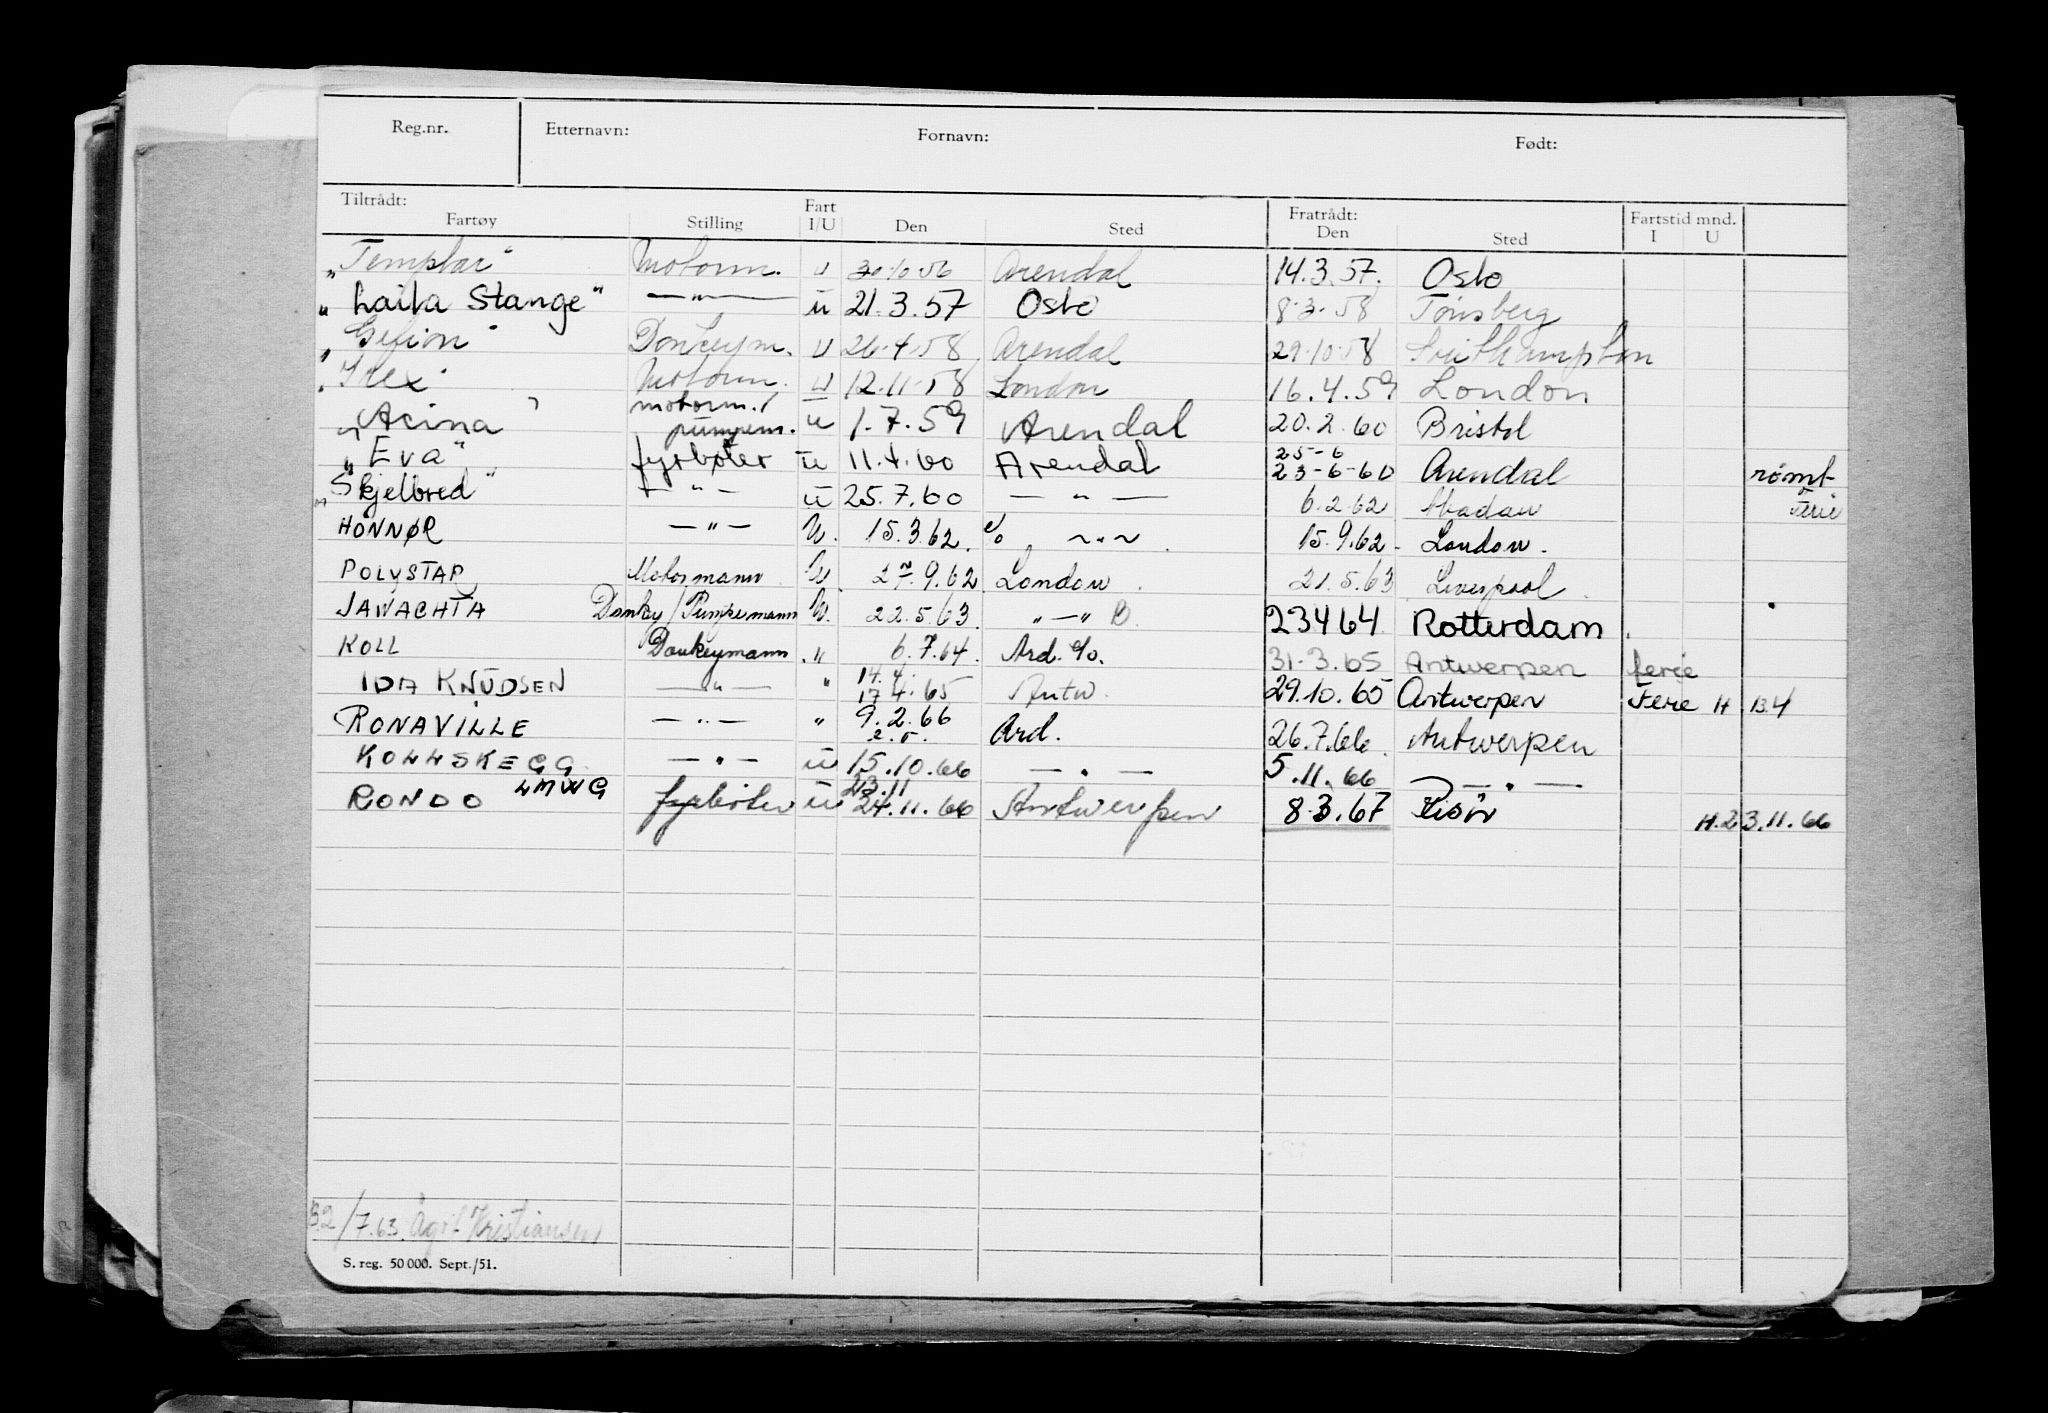 Reg.nr. Etternavn: Fornavn: Født:
Tiltrådt: Fart Fratrådt: Fartstid mnd.
Fartøy Stilling I/U Den Sted Den Sted I U
"Templar" Motorm. U 30.10.56 Arendal 14.3.57. Oslo
"Laila Stange" — " — u 21.3.57 Oslo 8.3.58 Tønsberg
"Gefion" Donkeym. U 26.4.58 Arendal 29.10.58 Southampton
"Ilex" Motorm. U 12.11.58 London 16.4.59 London
motorm./
"Acina" pumpem. u 1.7.59 Arendal 20.2.60 Bristol
25-6
"Eva" fyrbøter u 11.4.60 Arendal 23-6-60 Arendal rømt
"Skjelbred" — " — u 25.7.60 — " — 6.2.62 Abadan Ferie
HONNØR — " — U. 15.3.62. % ~ " ~ 15.9.62. London.
POLYSTAR Motormann U. 27.9.62 London 21.5.63 Liverpool
JAWACHTA Donkey/Pumpemann U. 22.5.63. " — " B. 23464 Rotterdam
KOLL Donkeymann " 6.7.64. Ard. %. 31.3.65 Antwerpen ferie
14.4.
IDA KNUDSEN — " — " 17.4.65 Antw. 29.10.65 Antwerpen Ferie H 13.4
RONAVILLE — " — " 9.2.66 Ard. 26.7.66. Antwerpen
2.5.
KOLLSKEGG — " — u 15.10.66 — " — 5.11.66 — " —
23.11
RONDO LMWG fyrbøter u 24.11.66 Antwerpen 8.3.67 Risör H.23.11.66
/7.63. Kristiansen
S. reg. 50 000. Sept./51.